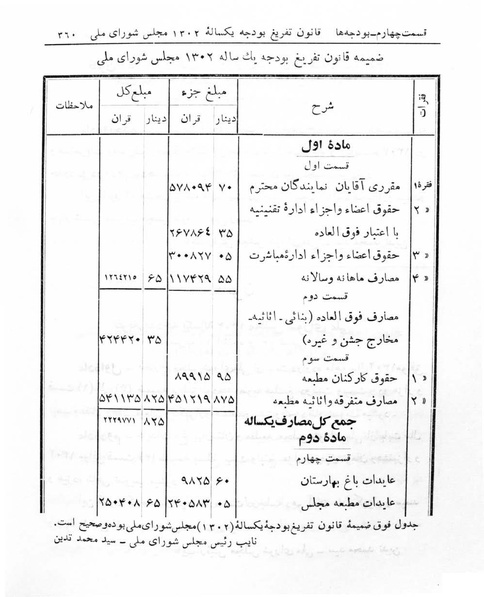 قسمت چهارم-بودجه‌ها قانون تفریغ بودجه یکسالهٔ ۱۳۰۲ مجلس شورای ملی ۳۶۰
ضمیمه قانون تفریغ بودجه یك ساله ۱۳۰۲ مجلس شورای ملی
فقرات شرح مبلغ جزء مبلغ کل ملاحظات
دینار قران دینار قران
مادهٔ اول
قسمت اول
فقرهٔ ۱ مقرری آقایان نمایندگان محترم ۷۰ ۵۷۸۰۹۴
« ۲ حقوق اعضاء واجزاء ادارهٔ تقنینیه
با اعتبار فوق العاده ۳۵ ۲۶۷۸۶۴
« ۳ حقوق اعضاء واجزاء ادارهٔ مباشرت ۰۵ ۳۰۰۸۲۷
« ۴ مصارف ماهانه وسالانه ۵۵ ۱۱۷۴۲۹ ۶۵ ۱۲۶۴۲۱۵
قسمت دوم
مصارف فوق العاده (بنائی ـ اثاثیه ـ
مخارج جشن و غیره) ۳۵ ۴۲۴۴۲۰
قسمت سوم
« ۱ حقوق کارکنان مطبعه ۹۵ ۸۹۹۱۵
« ۲ مصارف متفرقه واثاثیه مطبعه ۸۷۵ ۴۵۱۲۱۹ ۸۲۵ ۵۴۱۱۳۵
جمع کل مصارف یکساله ۸۲۵ ۲۲۲۹۷۷۱
مادهٔ دوم
قسمت چهارم
عایدات باغ بهارستان ۶۰ ۹۸۲۵
عایدات مطبعه مجلس ۰۵ ۲۴۰۵۸۳ ۶۵ ۲۵۰۴۰۸
جدول فوق ضمیمهٔ قانون تفریغ بودجهٔ یکسالهٔ (۱۳۰۲) مجلس شورای ملی بوده وصحیح است.
نایب رئیس مجلس شورای ملی ـ سید محمد تدین